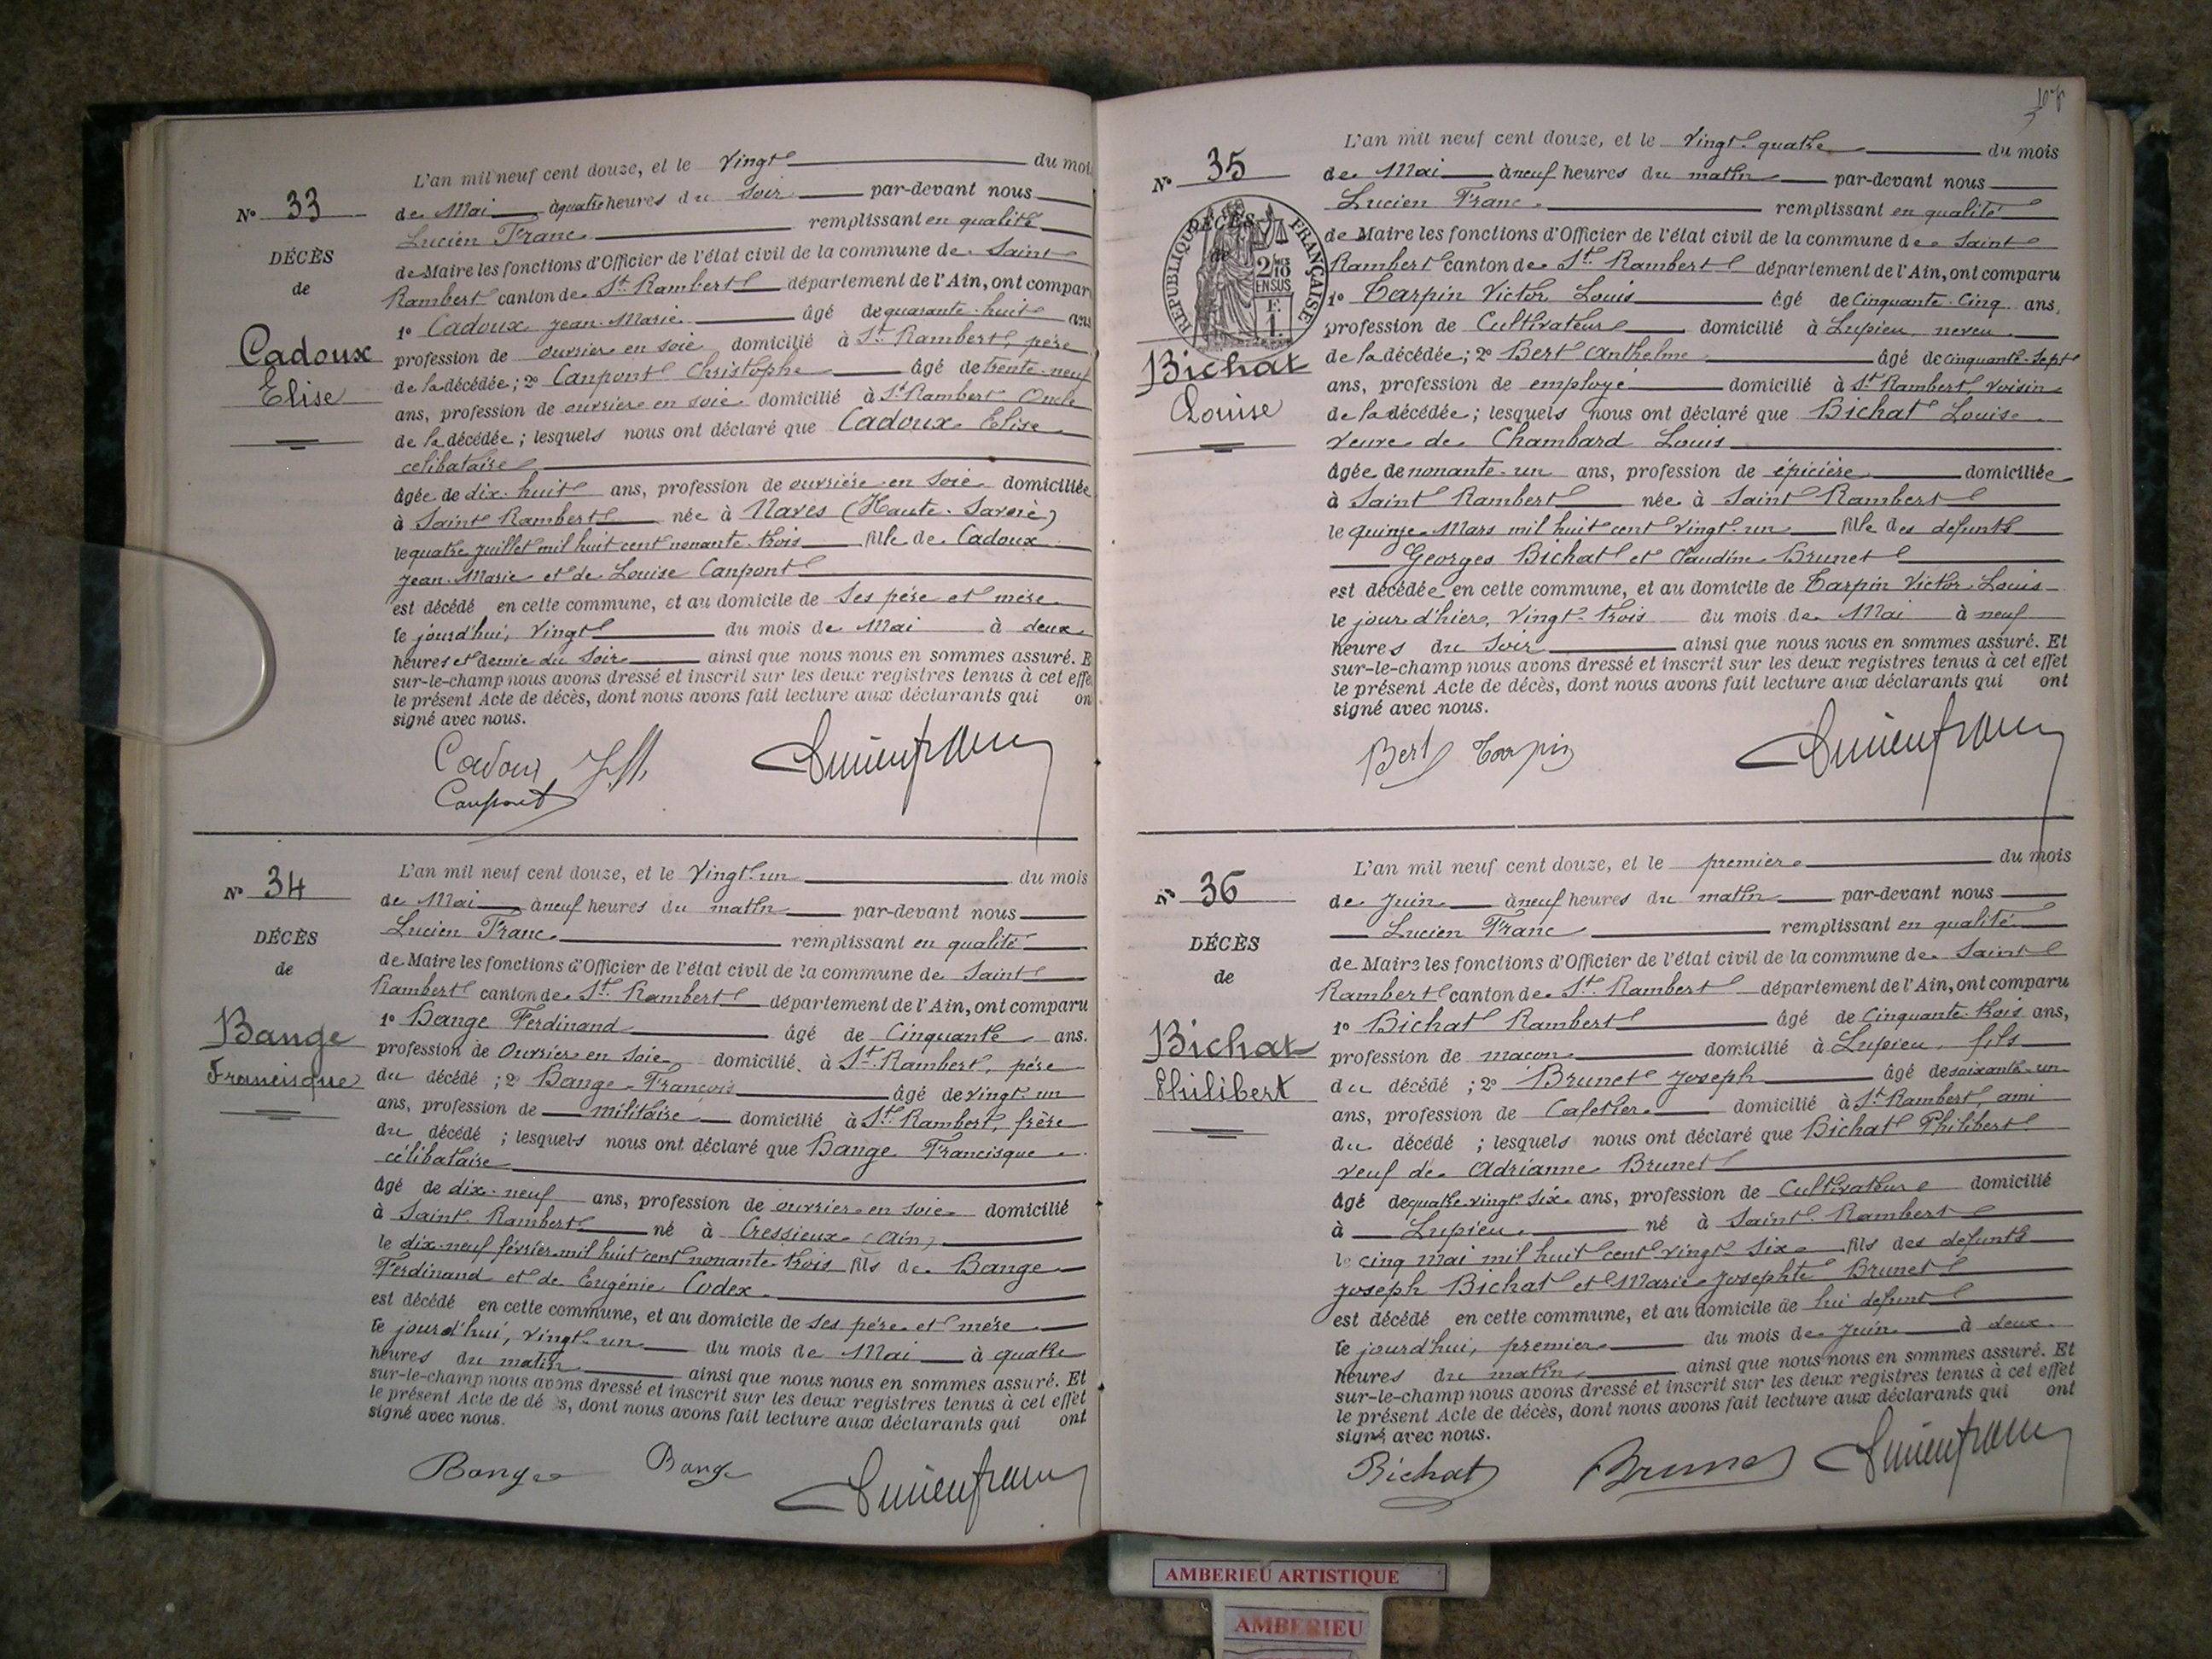 N° 33
DÉCÈS
de
Cadoux
Elise
L'an mil neuf cent douze, et le vingt du mois
de Mai à quatre heures du soir par-devant nous
Lucien Franc remplissant en qualité
de Maire les fonctions d'Officier de l'état civil de la commune de Saint
Rambert canton de St. Rambert département de l'Ain, ont compar
1° Cadoux Jean-Marie âgé de quarante-huit ans
profession de ouvrier en soie domicilié à St. Rambert, père
de la décédée; 2° Canpont Christophe âgé de trente-neuf
ans, profession de ouvrier en soie domicilié à St Rambert Oncle
de la décédée; lesquels nous ont déclaré que Cadoux Elise
célibataire
âgée de dix-huit ans, profession de ouvrière en soie domiciliée
à Saint Rambert née à Naves (Haute-Savoie)
le quatre juillet mil huit cent nonante-trois fille de Cadoux
Jean-Marie et de Louise Canpont
est décédé en cette commune, et au domicile de ses père et mère
le jourd'hui, vingt du mois de Mai à deux
heures et demie du soir ainsi que nous nous en sommes assuré. E
sur-le-champ nous avons dressé et inscrit sur les deux registres tenus à cet effe
le présent Acte de décès, dont nous avons fait lecture aux déclarants qui on
signé avec nous.
Canpont
N° 34
DÉCÈS
de
Bange
Francisque
L'an mil neuf cent douze, et le vingt-un du mois
de Mai à neuf heures du matin par-devant nous
Lucien Franc remplissant en qualité
de Maire les fonctions d'Officier de l'état civil de la commune de Saint
Rambert canton de St. Rambert département de l'Ain, ont comparu
1° Bange Ferdinand âgé de Cinquante ans.
profession de Ouvrier en soie domicilié à St. Rambert, père
du décédé; 2° Bange François âgé de vingt-un
ans, profession de militaire domicilié à St. Rambert, frère
du décédé; lesquels nous ont déclaré que Bange Francisque
célibataire
âgé de dix-neuf ans, profession de ouvrier en soie domicilié
à Saint-Rambert né à Cressieux (Ain)
le dix-neuf février mil huit cent nonante-trois fils de Bange
Ferdinand et de Eugénie Codex
est décédé en cette commune, et au domicile de ses père et mère
le jourd'hui, vingt-un du mois de Mai à quatre
heures du matin ainsi que nous nous en sommes assuré. Et
sur-le-champ nous avons dressé et inscrit sur les deux registres tenus à cet effet
le présent Acte de dé s, dont nous avons fait lecture aux déclarants qui ont
signé avec nous.
Bange Bange
N° 35
DÉCÈS
de
RÉPUBLIQUE FRANÇAISE
2/10
EN SUS
Bichat
Louise
L'an mil neuf cent douze, et le vingt-quatre du mois
de Mai à neuf heures du matin par-devant nous
Lucien Franc remplissant en qualité
de Maire les fonctions d'Officier de l'état civil de la commune de Saint
Rambert canton de St. Rambert département de l'Ain, ont comparu
1° Tarpin Victor Louis âgé de Cinquante-Cinq ans,
profession de Cultivateur domicilié à Lupieu, neveu
de la décédée; 2° Bert Anthelme âgé de cinquante-sept
ans, profession de employé domicilié à St. Rambert, voisin
de la décédée; lesquels nous ont déclaré que Bichat Louise
veuve de Chambard Louis
âgée de nonante-un ans, profession de épicière domiciliée
à Saint Rambert née à Saint Rambert
le quinze Mars mil huit cent vingt-un fille des defunts
Georges Bichat et Claudine Brunet
est décédée en cette commune, et au domicile de Tarpin Victor Louis
le jour d'hier, vingt-trois du mois de Mai à neuf
heures du soir ainsi que nous nous en sommes assuré. Et
sur-le-champ nous avons dressé et inscrit sur les deux registres tenus à cet effet
le présent Acte de décès, dont nous avons fait lecture aux déclarants qui ont
signé avec nous.
Bert Tarpin
N° 36
DÉCÈS
de
Bichat
Philibert
L'an mil neuf cent douze, et le premier du mois
de Juin à neuf heures du matin par-devant nous
Lucien Franc remplissant en qualité
de Maire les fonctions d'Officier de l'état civil de la commune de Saint
Rambert canton de St. Rambert département de l'Ain, ont comparu
1° Bichat Rambert âgé de Cinquante-trois ans,
profession de maçon domicilié à Lupieu, fils
du décédé; 2° Brunet Joseph âgé de soixante-un
ans, profession de Cafetier domicilié à St. Rambert, ami
du décédé; lesquels nous ont déclaré que Bichat Philibert
veuf de Adrianne Brunet
âgé de quatre vingt-six ans, profession de Cultivateur domicilié
à Lupieu né à Saint-Rambert
le cinq mai mil huit cent vingt-six fils des defunts
Joseph Bichat et Marie-Josephte Brunet
est décédé en cette commune, et au domicile de lui defunt
le jourd'hui, premier du mois de Juin à deux
heures du matin ainsi que nous nous en sommes assuré. Et
sur-le-champ nous avons dressé et inscrit sur les deux registres tenus à cet effet
le présent Acte de décès, dont nous avons fait lecture aux déclarants qui ont
signé avec nous.
Bichat Brunet
AMBERIEU ARTISTIQUE
AMBERIEU